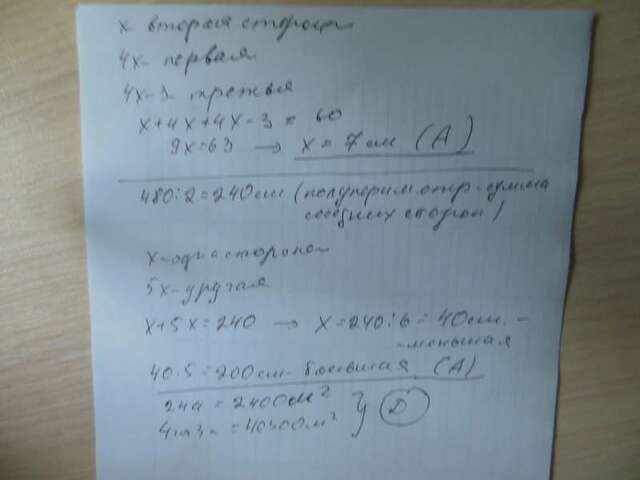 x- вторая сторона
4x- первая
4x-3- третья
x+4x+4x-3 = 60
9x=63 → x = 7 см (A)
480:2=240см (полупериметр-сумма
соседних сторон)
x-одна сторона
5x-другая
x+5x=240 → x=240:6=40см. -
-меньшая
40·5=200см- большая (A)
24а = 2400м²
= 40300м² } D